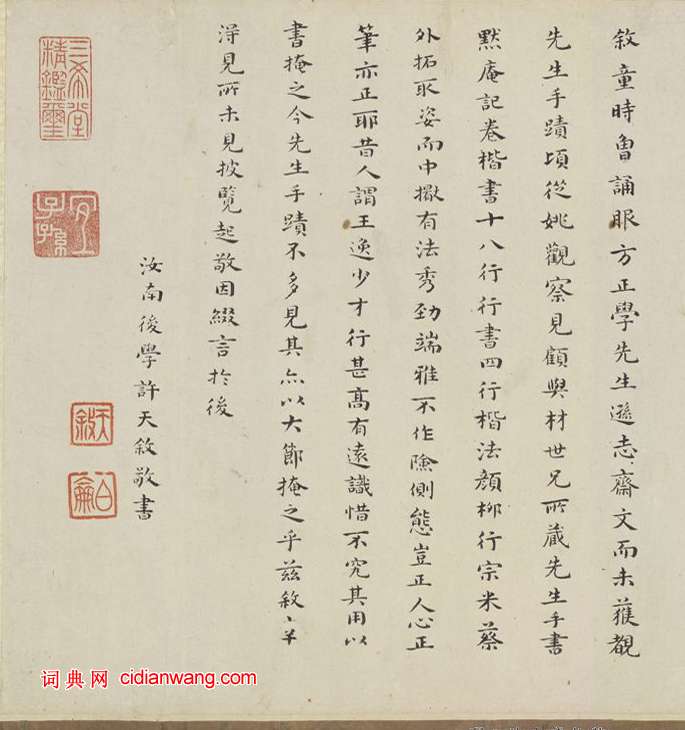 敘童時曾誦眠方正學先生遜志齋文而未獲觀
先生手蹟頃從姚觀察見顧與材世兄所藏先生手書
默庵記卷楷書十八行行書四行楷法顏柳行宗米蔡
外拓取姿而中擫有法秀勁端雅不作險側態豈正人心正
筆亦正耶昔人謂王逸少才行甚高有遠識惜不究其用以
書掩之今先生手蹟不多見其亦以大節掩之乎茲敘〻幸
得見所未見披覽起敬因綴言於後
汝南後學許天敘敬書
三希堂精鑑璽
宜子孫
天敘
词典网 cidianwang.com